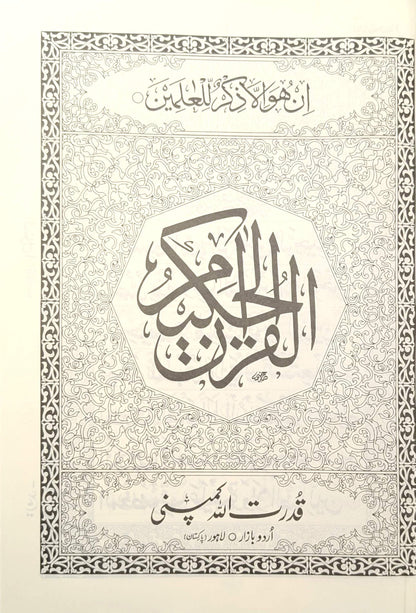 اِنْ هُوَ اِلَّا ذِكْرٌ لِّلْعٰلَمِيْنَ ○
القرآن الحکیم
قُدرت اللہ کمپنی
اُردو بازار ○ لاہور (پاکستان)